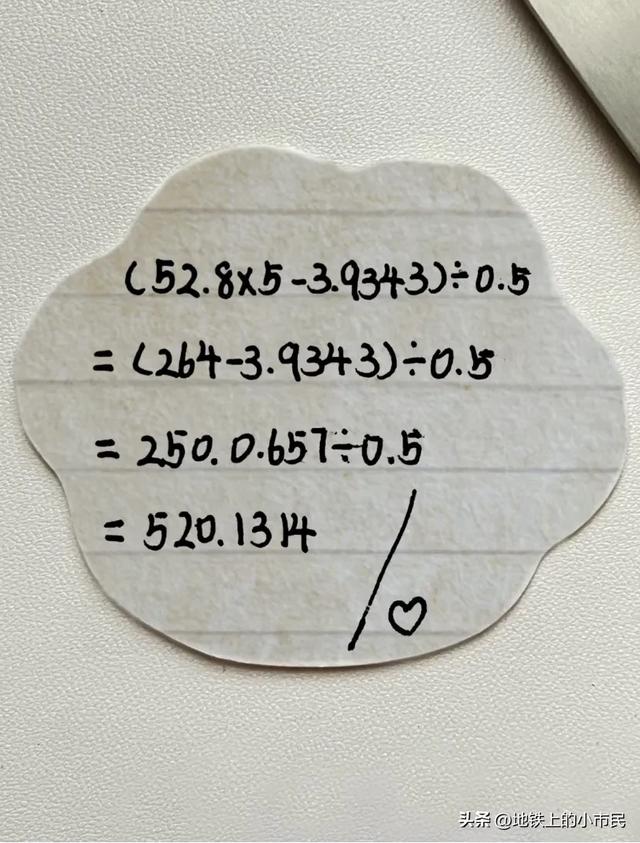 (52.8×5-3.9343)÷0.5
=(264-3.9343)÷0.5
=250.0.657÷0.5
=520.1314
头条 @地铁上的小市民